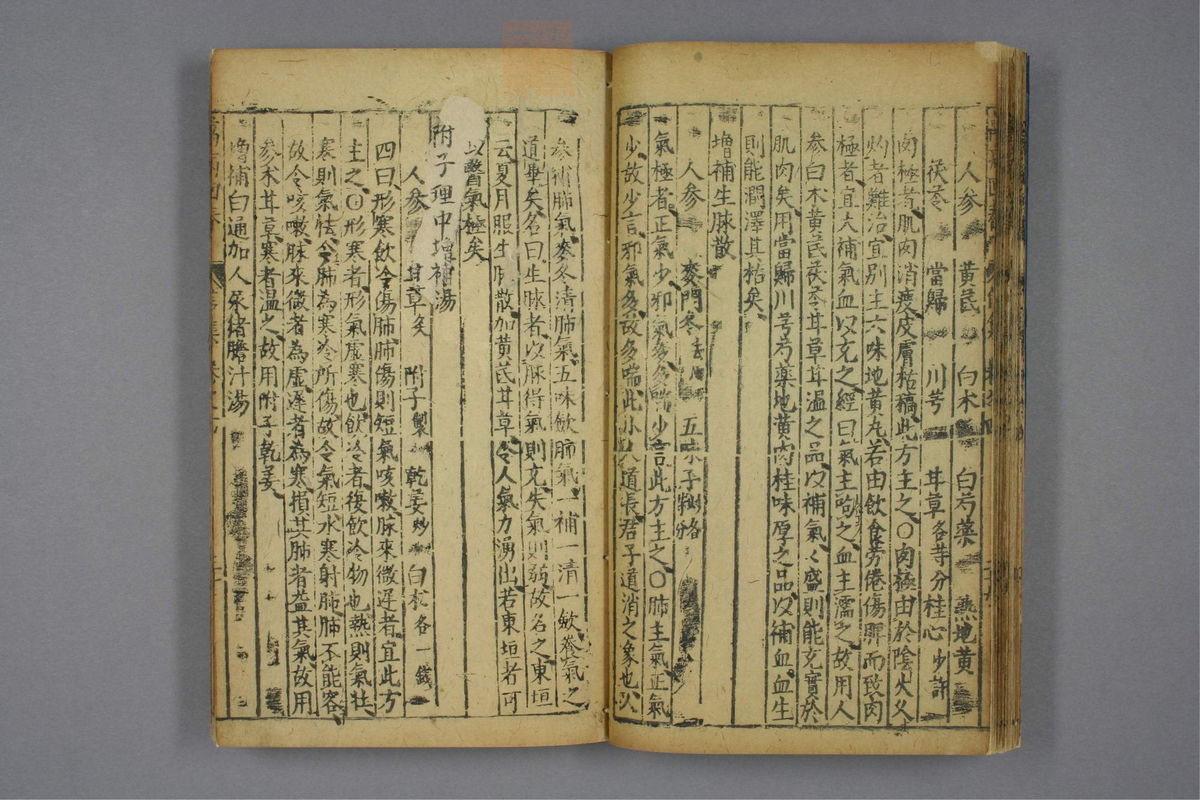 人參 黃芪 白朮 白芍藥 熟地黃
茯苓 當歸 川芎 甘草各等分桂心少許
肉極者肌肉消瘦皮膚枯稿此方主之〇肉極由於陰火久
灼者難治宜别主六味地黃丸若由飲食勞倦傷脾而致肉
極者宜大補氣血以充之經曰氣主呴之血主濡之故用人
參白朮黃芪茯苓甘草甘溫之品以補氣〻盛則能充實於
肌肉矣用當歸川芎芍藥地黃肉桂味厚之品以補血血生
則能潤澤其枯矣
增補生脉散
人參 麥門冬去 五味子 各 分
氣極者正氣少邪氣多多喘少言此方主之〇肺主氣正氣
少故少言邪氣多故多喘此小人道長君子道消之象也
參補肺氣麥冬清肺氣五味歛肺氣一補一清一歛養氣之
道畢矣名曰生脉者以脉得氣則充失氣則弱故名之東垣
云夏月服生脉散加黃芪甘草令人氣力湧出若東垣者可
以醫氣極矣
附子理中增補湯
人參 甘草炙 附子製 乾姜炒 白朮各一錢
四曰形寒飲冷傷肺肺傷則短氣咳嗽脉來微遲者宜此方
主之〇形寒者形氣虛寒也飲冷者後飲冷物也熱則氣壯
寒則氣怯今肺為寒冷所傷故令氣短水寒射肺肺不能容
故令咳嗽脉來微者為虛遲者為寒損其肺者益其氣故用
參朮甘草寒者溫之故用附子乾姜
增補白通加人尿猪膽汁湯